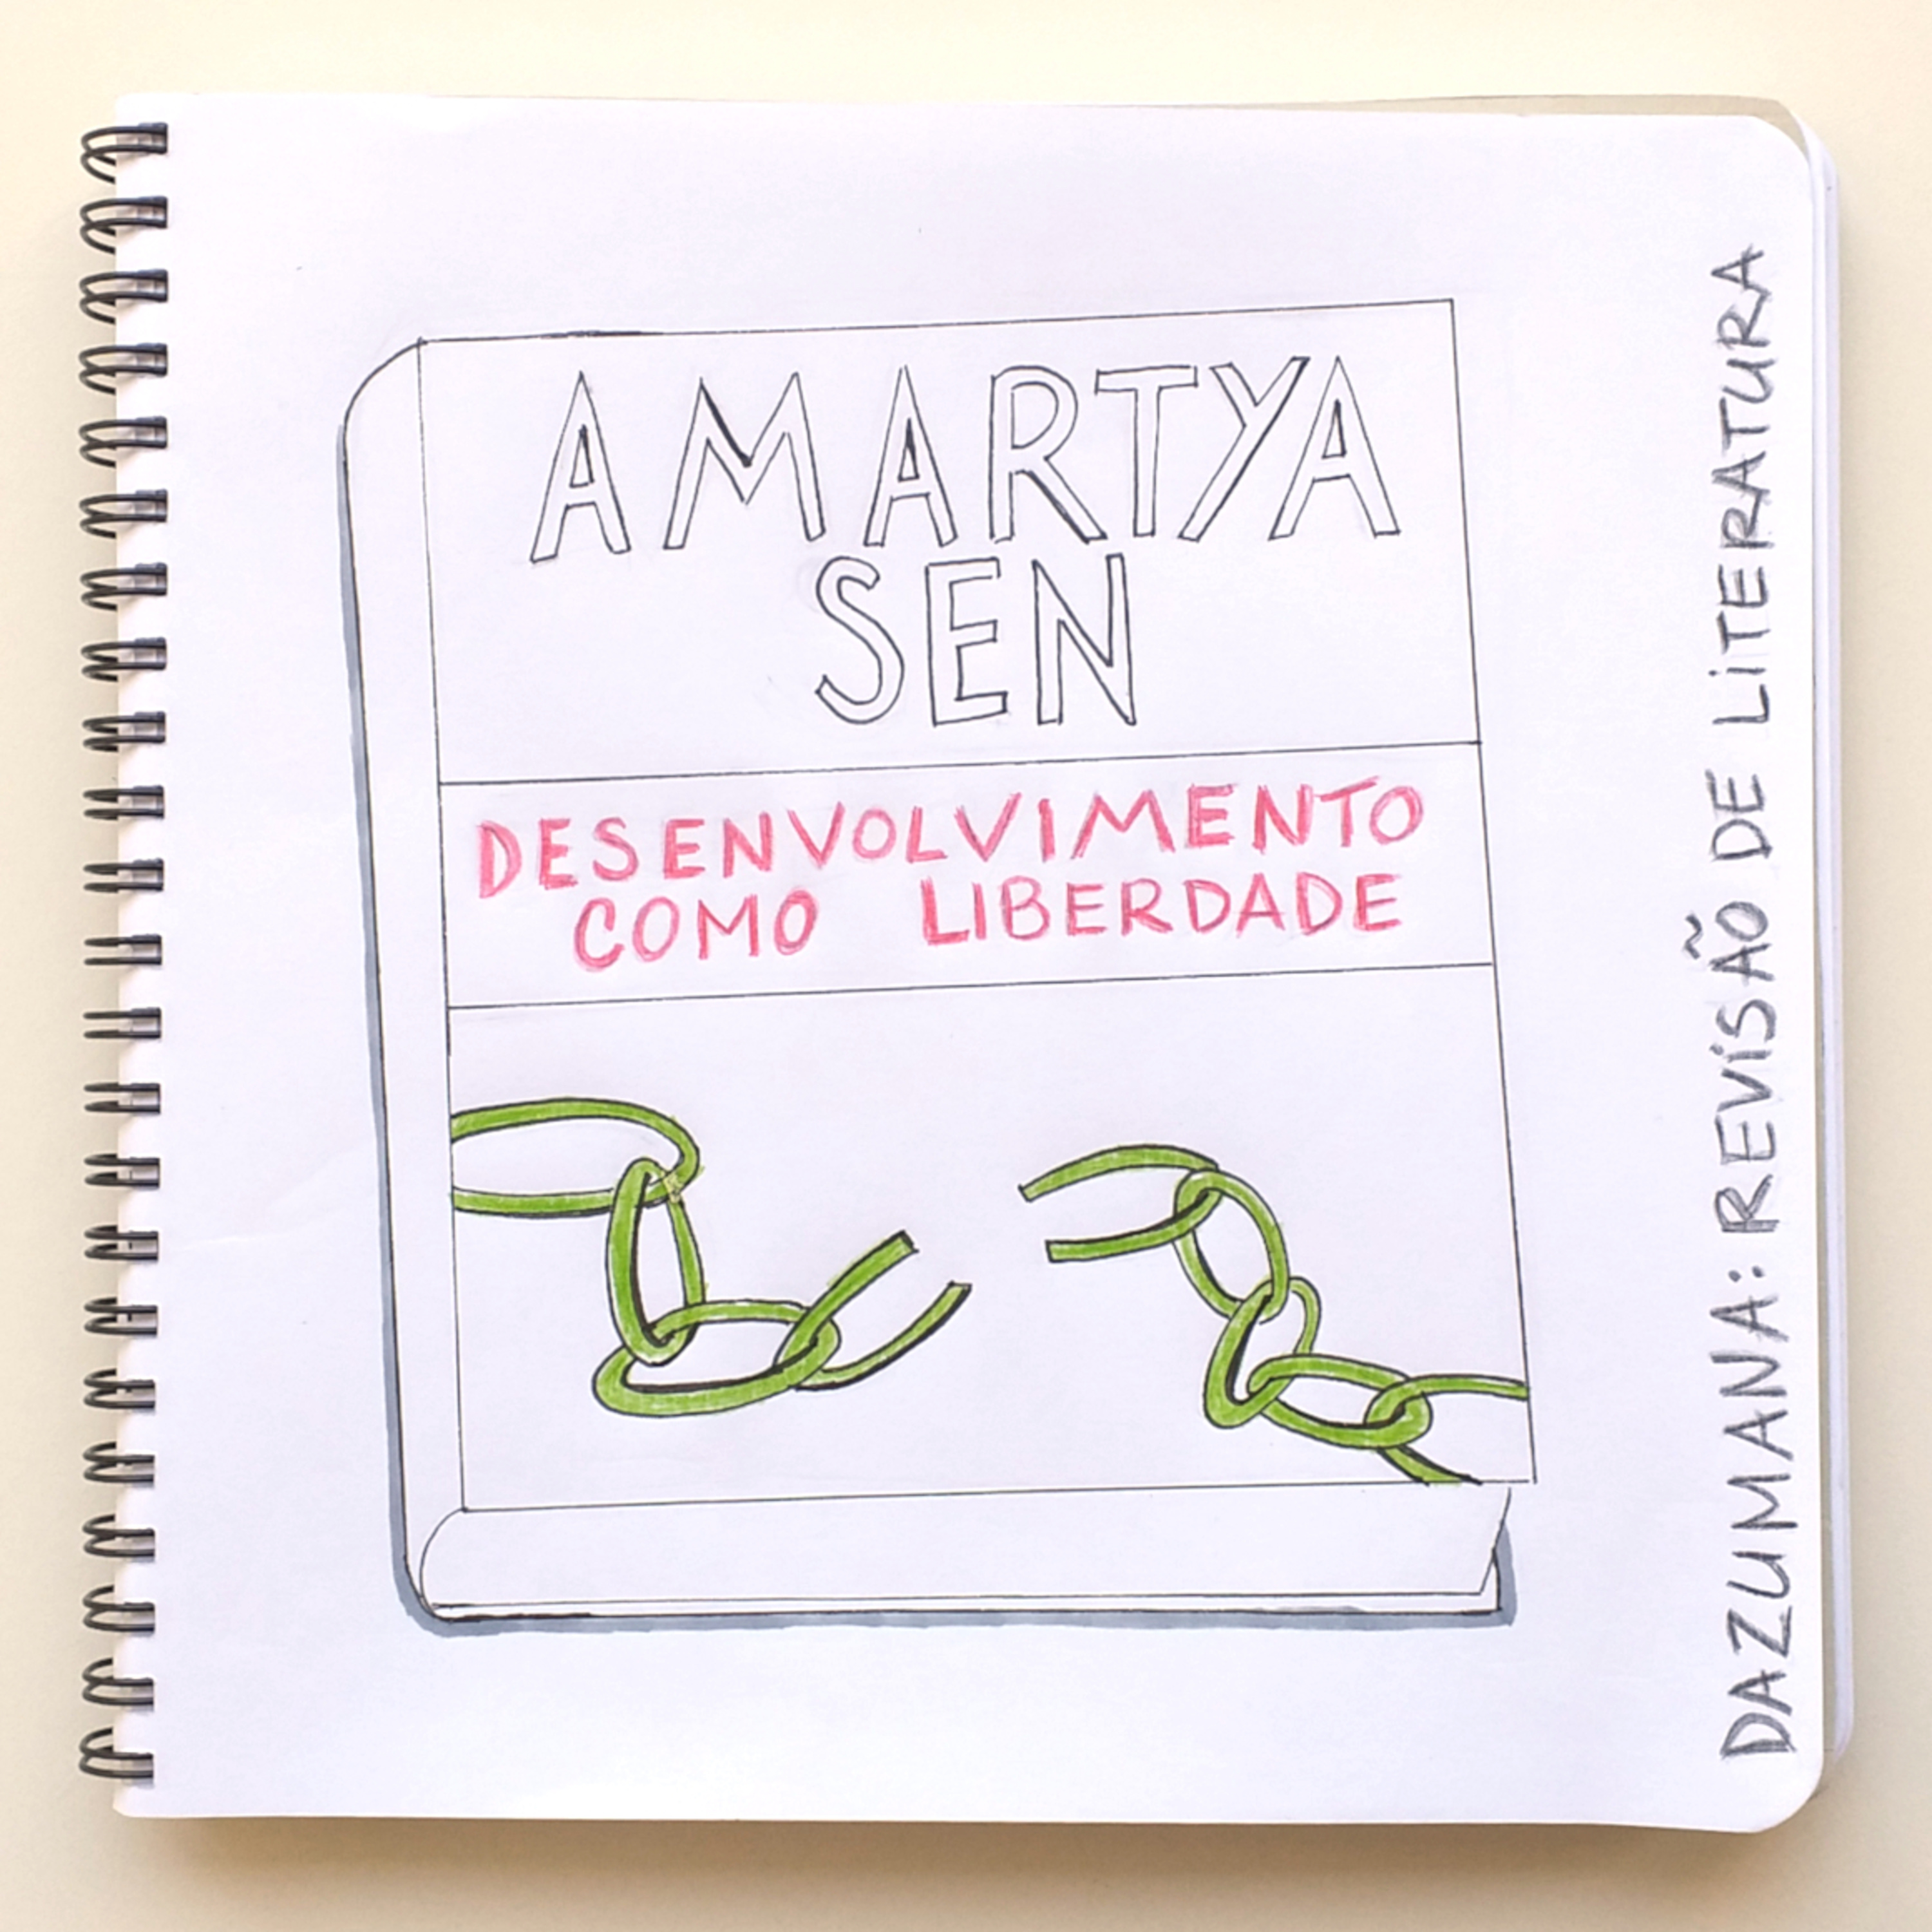 AMARTYA
SEN
DESENVOLVIMENTO
COMO LIBERDADE
DAZUMANA: REVISÃO DE LITERATURA